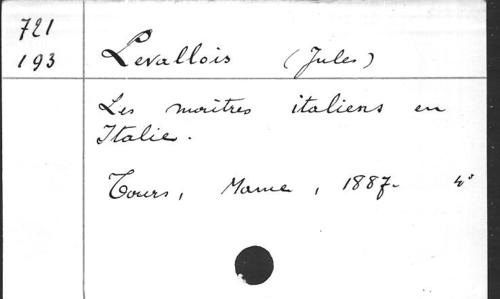 721
193
Levallois (Jules)
Les maîtres italiens en
Italie.
Tours, Mame, 1887. 4°